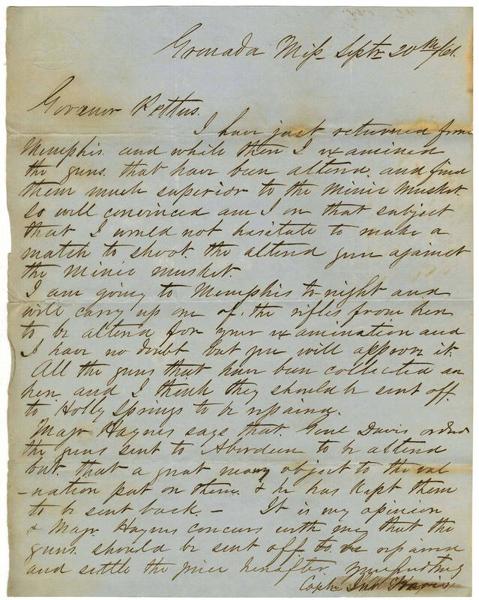 Grenada Miss Septr 20th /61.
Govenor Pettus.
I have just returned from
Memphis and while then I examined
the guns that have been altend. and find
them much superior to the Minie Musket
So will convinced am I on that subject
that I would not hesitate to make a
match to shoot the altend gun against
the Minie musket
I am going to Memphis to night and
will carry up one of the rifles from here
to be altend for your examination and
I have no doubt but you will approve it.
All the guns that have been collected are
here and I think they should be sent off
to Holly Springs to be repaired.
Majr Haynes says that Genl Davis orderd
the guns sent to Aberdeen to be altend
but that a great many object to the val
-uation put on them & he has kept them
to be sent back – It is my opinion
& Majr Haynes concurs with me that the
guns should be sent off to be repaired
and settle the price hereafter
Capt Jno